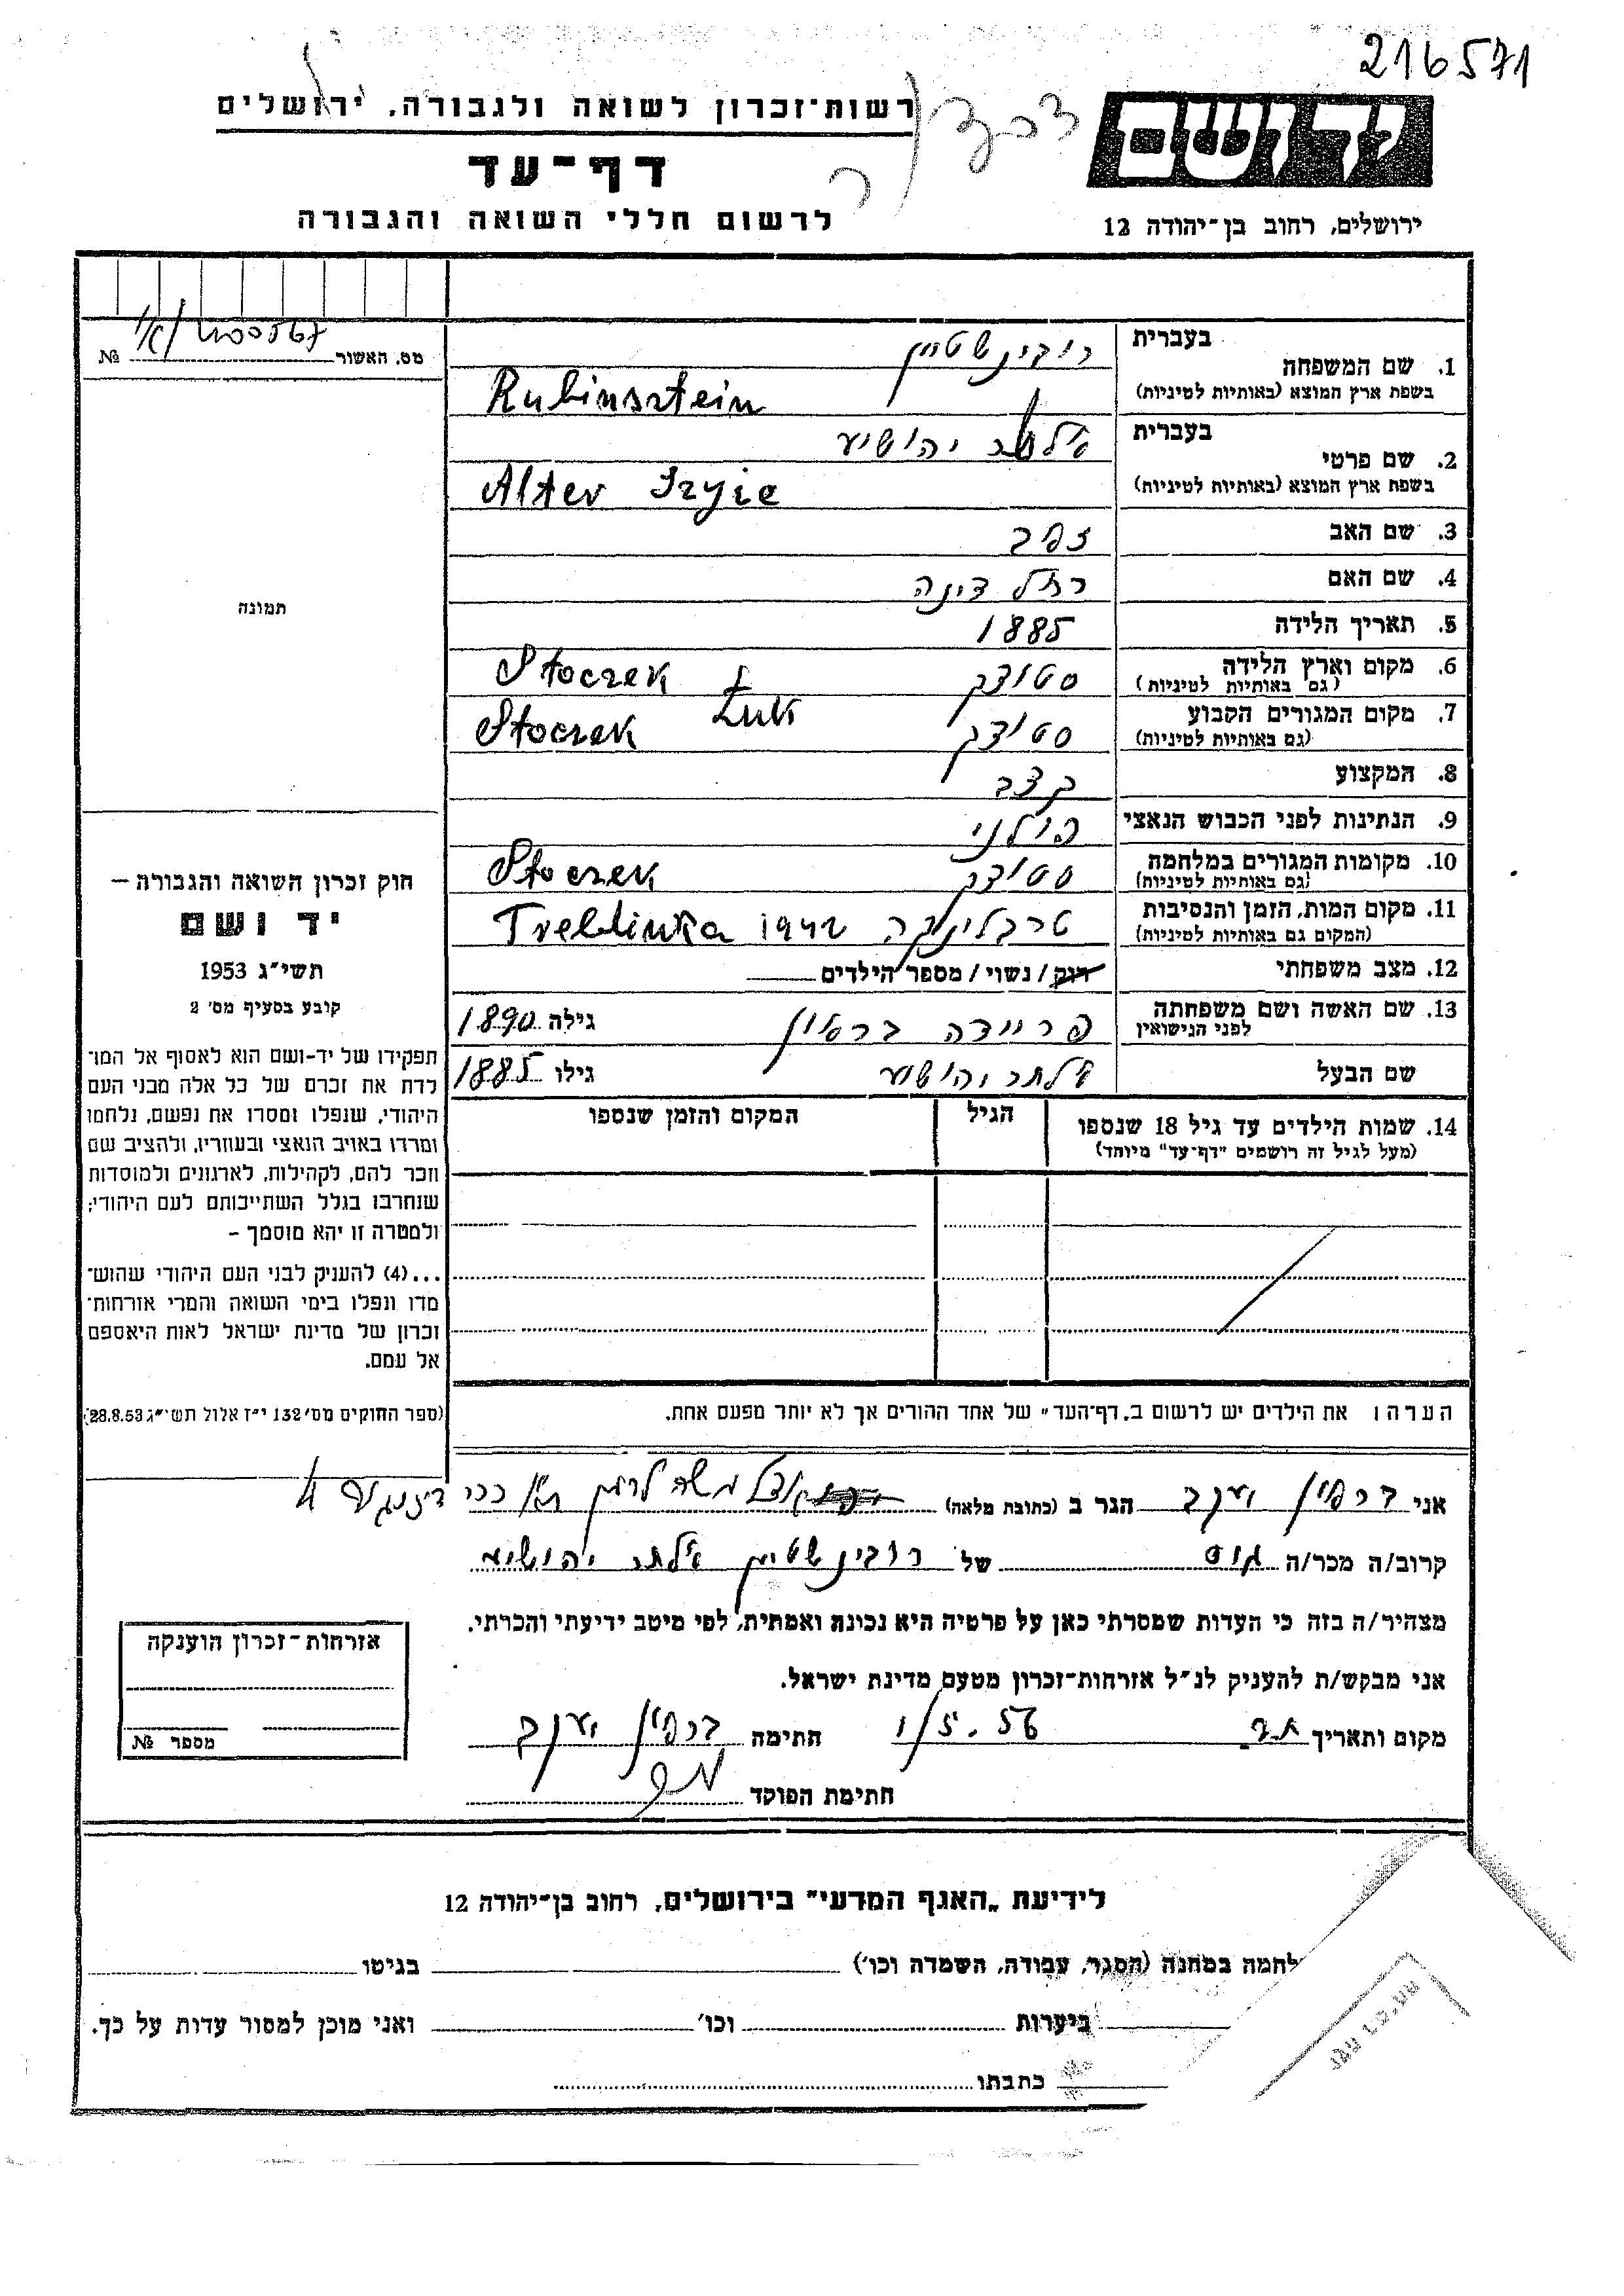 216571
יד ושם
רשות-זכרון לשואה ולגבורה, ירושלים
דף-עד
לרשום חללי השואה והגבורה
ירושלים, רחוב בן-יהודה 12
מס. האשור №
תמונה
1. שם המשפחה בעברית רובינשטיין
בשפת ארץ המוצא (באותיות לטיניות) Rubinsztein
2. שם פרטי בעברית אלתר יהושע
בשפת ארץ המוצא (באותיות לטיניות) Alter Szyie
3. שם האב זאב
4. שם האם רחל דינה
5. תאריך הלידה 1885
6. מקום וארץ הלידה סטוצק Stoczek Ł
(גם באותיות לטיניות)
Łuk
7. מקום המגורים הקבוע סטוצק Stoczek
(גם באותיות לטיניות)
8. המקצוע קצב
9. הנתינות לפני הכבוש הנאצי פולני
10. מקומות המגורים במלחמה סטוצק Stoczek
(גם באותיות לטיניות)
11. מקום המות, הזמן והנסיבות טרבלינקה 1942 Treblinka
(המקום גם באותיות לטיניות)
12. מצב משפחתי רווק / נשוי / מספר הילדים
13. שם האשה ושם משפחתה פריידה גילה 1890
לפני הנישואין
שם הבעל אלתר יהושע גילו 1885
14. שמות הילדים עד גיל 18 שנספו הגיל המקום והזמן שנספו
(מעל לגיל זה רושמים "דף-עד" מיוחד)
הערה: את הילדים יש לרשום ב„דף-העד" של אחד ההורים אך לא יותר מפעם אחת.
חוק זכרון השואה והגבורה –
יד ושם
תשי"ג 1953
קובע בסעיף מס' 2
תפקידו של יד-ושם הוא לאסוף אל המו־
לדת את זכרם של כל אלה מבני העם
היהודי, שנפלו ומסרו את נפשם, נלחמו
ומרדו באויב הנאצי ובעוזריו, ולהציב שם
וזכר להם, לקהילות, לארגונים ולמוסדות
שנחרבו בגלל השתייכותם לעם היהודי;
ולמטרה זו יהא מוסמך –
...(4) להעניק לבני העם היהודי שהוש־
מדו ונפלו בימי השואה והמרי אזרחות־
זכרון של מדינת ישראל לאות היאספם
אל עמם.
(ספר החוקים מס' 132 י"ז אלול תשי"ג 28.8.53)
אני יעקב הגר ב (כתובת מלאה)
קרוב/ה מכר/ה גיס של רובינשטיין אלתר יהושע
מצהיר/ה בזה כי העדות שמסרתי כאן על פרטיה היא נכונה ואמתית, לפי מיטב ידיעתי והכרתי.
אני מבקש/ת להעניק לנ"ל אזרחות-זכרון מטעם מדינת ישראל.
מקום ותאריך ת.א. 1/5.56 חתימה יעקב
חתימת הפוקד
אזרחות-זכרון הוענקה
מספר №
לידיעת „האגף המדעי" בירושלים, רחוב בן-יהודה 12
לחמה במחנה (הסגר, עבודה, השמדה וכו') בגיטו
ביערות וכו' ואני מוכן למסור עדות על כך.
כתבתו